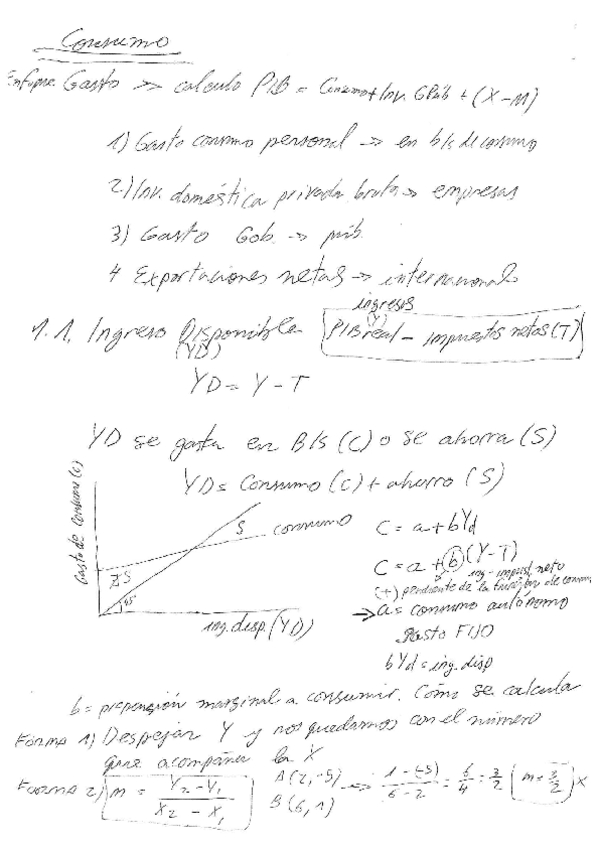 Consumo
Enfoque Gasto >> calculo PIB = Consumo + Inv. GPúb + (X-M)
1) Gasto consumo personal -> en b/s de consumo
2) Inv. doméstica privada bruta -> empresas
3) Gasto Gob. -> púb.
4 Exportaciones netas -> internacional
ingresos
1.1. Ingreso Disponible (YD) PIB real (Y) - impuestos netos (T)
YD = Y - T
YD se gasta en B/s (C) o se ahorra (S)
YD = Consumo (C) + ahorro (S)
Gasto de Consumo (C)
S consumo
S
45
ing. disp. (YD)
C = a + bYd
C = a + b (Y-T)
ing - impuest. neto
(+) pendiente de la función de consumo
-> a = consumo autónomo
Gasto FIJO
bYd = ing. disp
b = propensión marginal a consumir. Cómo se calcula
Forma 1) Despejar Y y nos quedamos con el número
que acompaña la X
Forma 2) m = Y2 - Y1 / X2 - X1
A(2,-5)
B(6,1)
-> 1-(-5) / 6-2 = 6/4 = 3/2 (m = 3/2) x